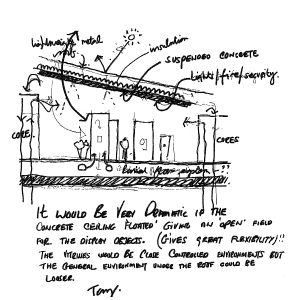 metal
insulation
SUSPENDED CONCRETE
Lights/fire/security.
CORE
CORES
IT WOULD BE VERY DRAMATIC IF THE
CONCRETE CEILING 'FLOATED' GIVING AN 'OPEN' FIELD
FOR THE DISPLAY OBJECTS. (GIVES GREAT FLEXIBILITY)!!
THE VITRINES WOULD BE CLOSE CONTROLLED ENVIRONMENTS BUT
THE GENERAL ENVIRONMENT UNDER THE ROOF COULD BE
LOOSER.
Tony.